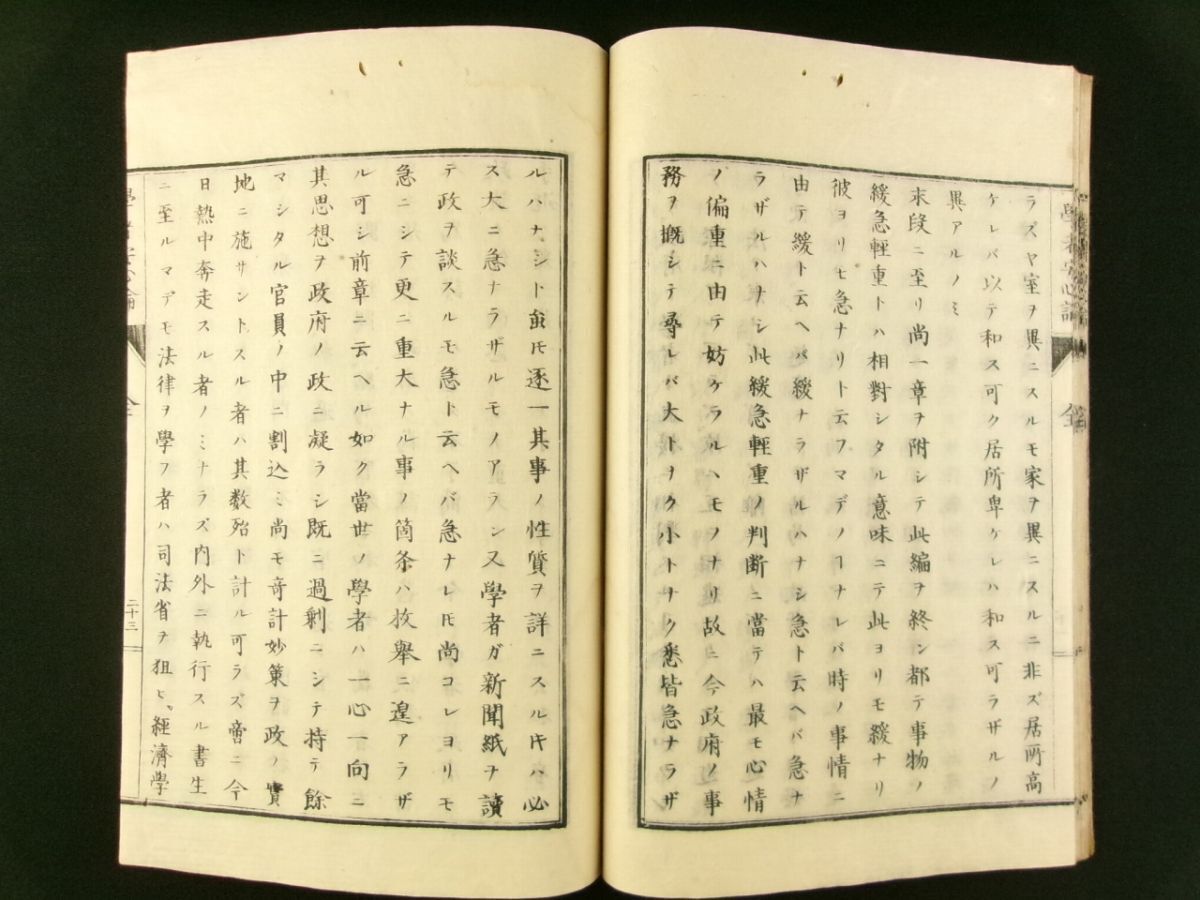 ラズヤ室ヲ異ニスルモ家ヲ異ニスルニ非ズ居所高
ケレバ以テ和ス可ク居所卑ケレハ和ス可ラザルノ
異アルノミ
末段ニ至リ尚一章ヲ附シテ此編ヲ終ン都テ事物ノ
緩急輕重トハ相對シタル意味ニテ此ヨリモ緩ナリ
彼ヨリモ急ナリト云フマデノヿナレバ時ノ事情ニ
由テ緩ト云ヘバ緩ナラザルハナシ急ト云ヘバ急ナ
ラザルハナシ此緩急輕重ノ判断ニ當テハ最モ心情
ノ偏重ニ由テ妨ケラルヽモノナリ故ニ今政府ノ事
務ヲ概シテ尋レバ大トナク小トナク悉皆急ナラザ
學者安心論
全
ルハナシト𧈧𪜈逐一其事ノ性質ヲ詳ニスル𪜈ハ必
ス大ニ急ナラザルモノアラン又學者ガ新聞紙ヲ讀
テ政ヲ談スルモ急ト云ヘバ急ナレ𪜈尚コレヨリモ
急ニシテ更ニ重大ナル事ノ箇条ハ枚舉ニ遑アラザ
ル可シ前章ニ云ヘル如ク當世ノ學者ハ一心一向ニ
其思想ヲ政府ノ政ニ凝ラシ既ニ過剰ニシテ持テ餘
マシタル官員ノ中ニ割込ミ尚モ奇計妙策ヲ政ノ實
地ニ施サントスル者ハ其数殆ト計ル可ラズ啻ニ今
日熱中奔走スル者ノミナラズ内外ニ執行スル書生
ニ至ルマデモ法律ヲ學フ者ハ司法省ヲ狙ヒ經濟學
學者安心論
全
二十三